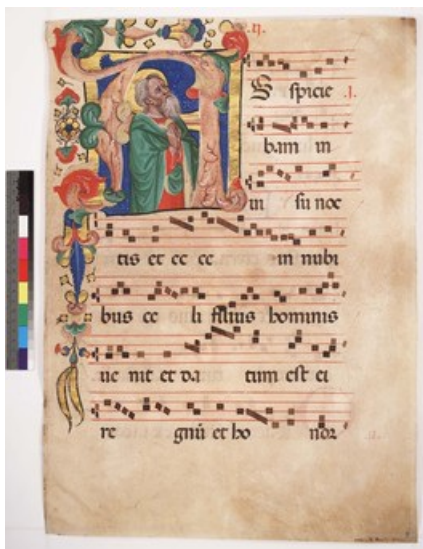 A spicie
bam in
ui su noc
tis et ec ce in nubi
bus ce li filius hominis
ue nit et da tum est ei
re gnū et ho nor